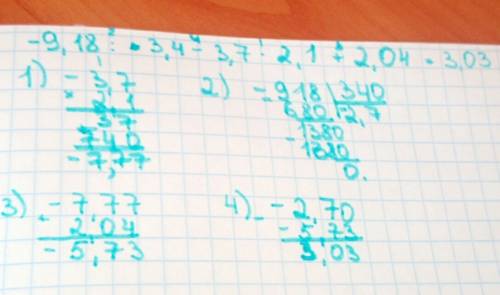 -9,18 : 3,4 - 3,7 · 2,1 + 2,04 = 3,03
1) - 3,7
× 2,1
37
740
- 7,77
2) - 918 | 340
680 | 2,7
- 1380
1380
0.
3) - 7,77
2,04
- 5,73
4) - - 2,70
- 5,73
3,03